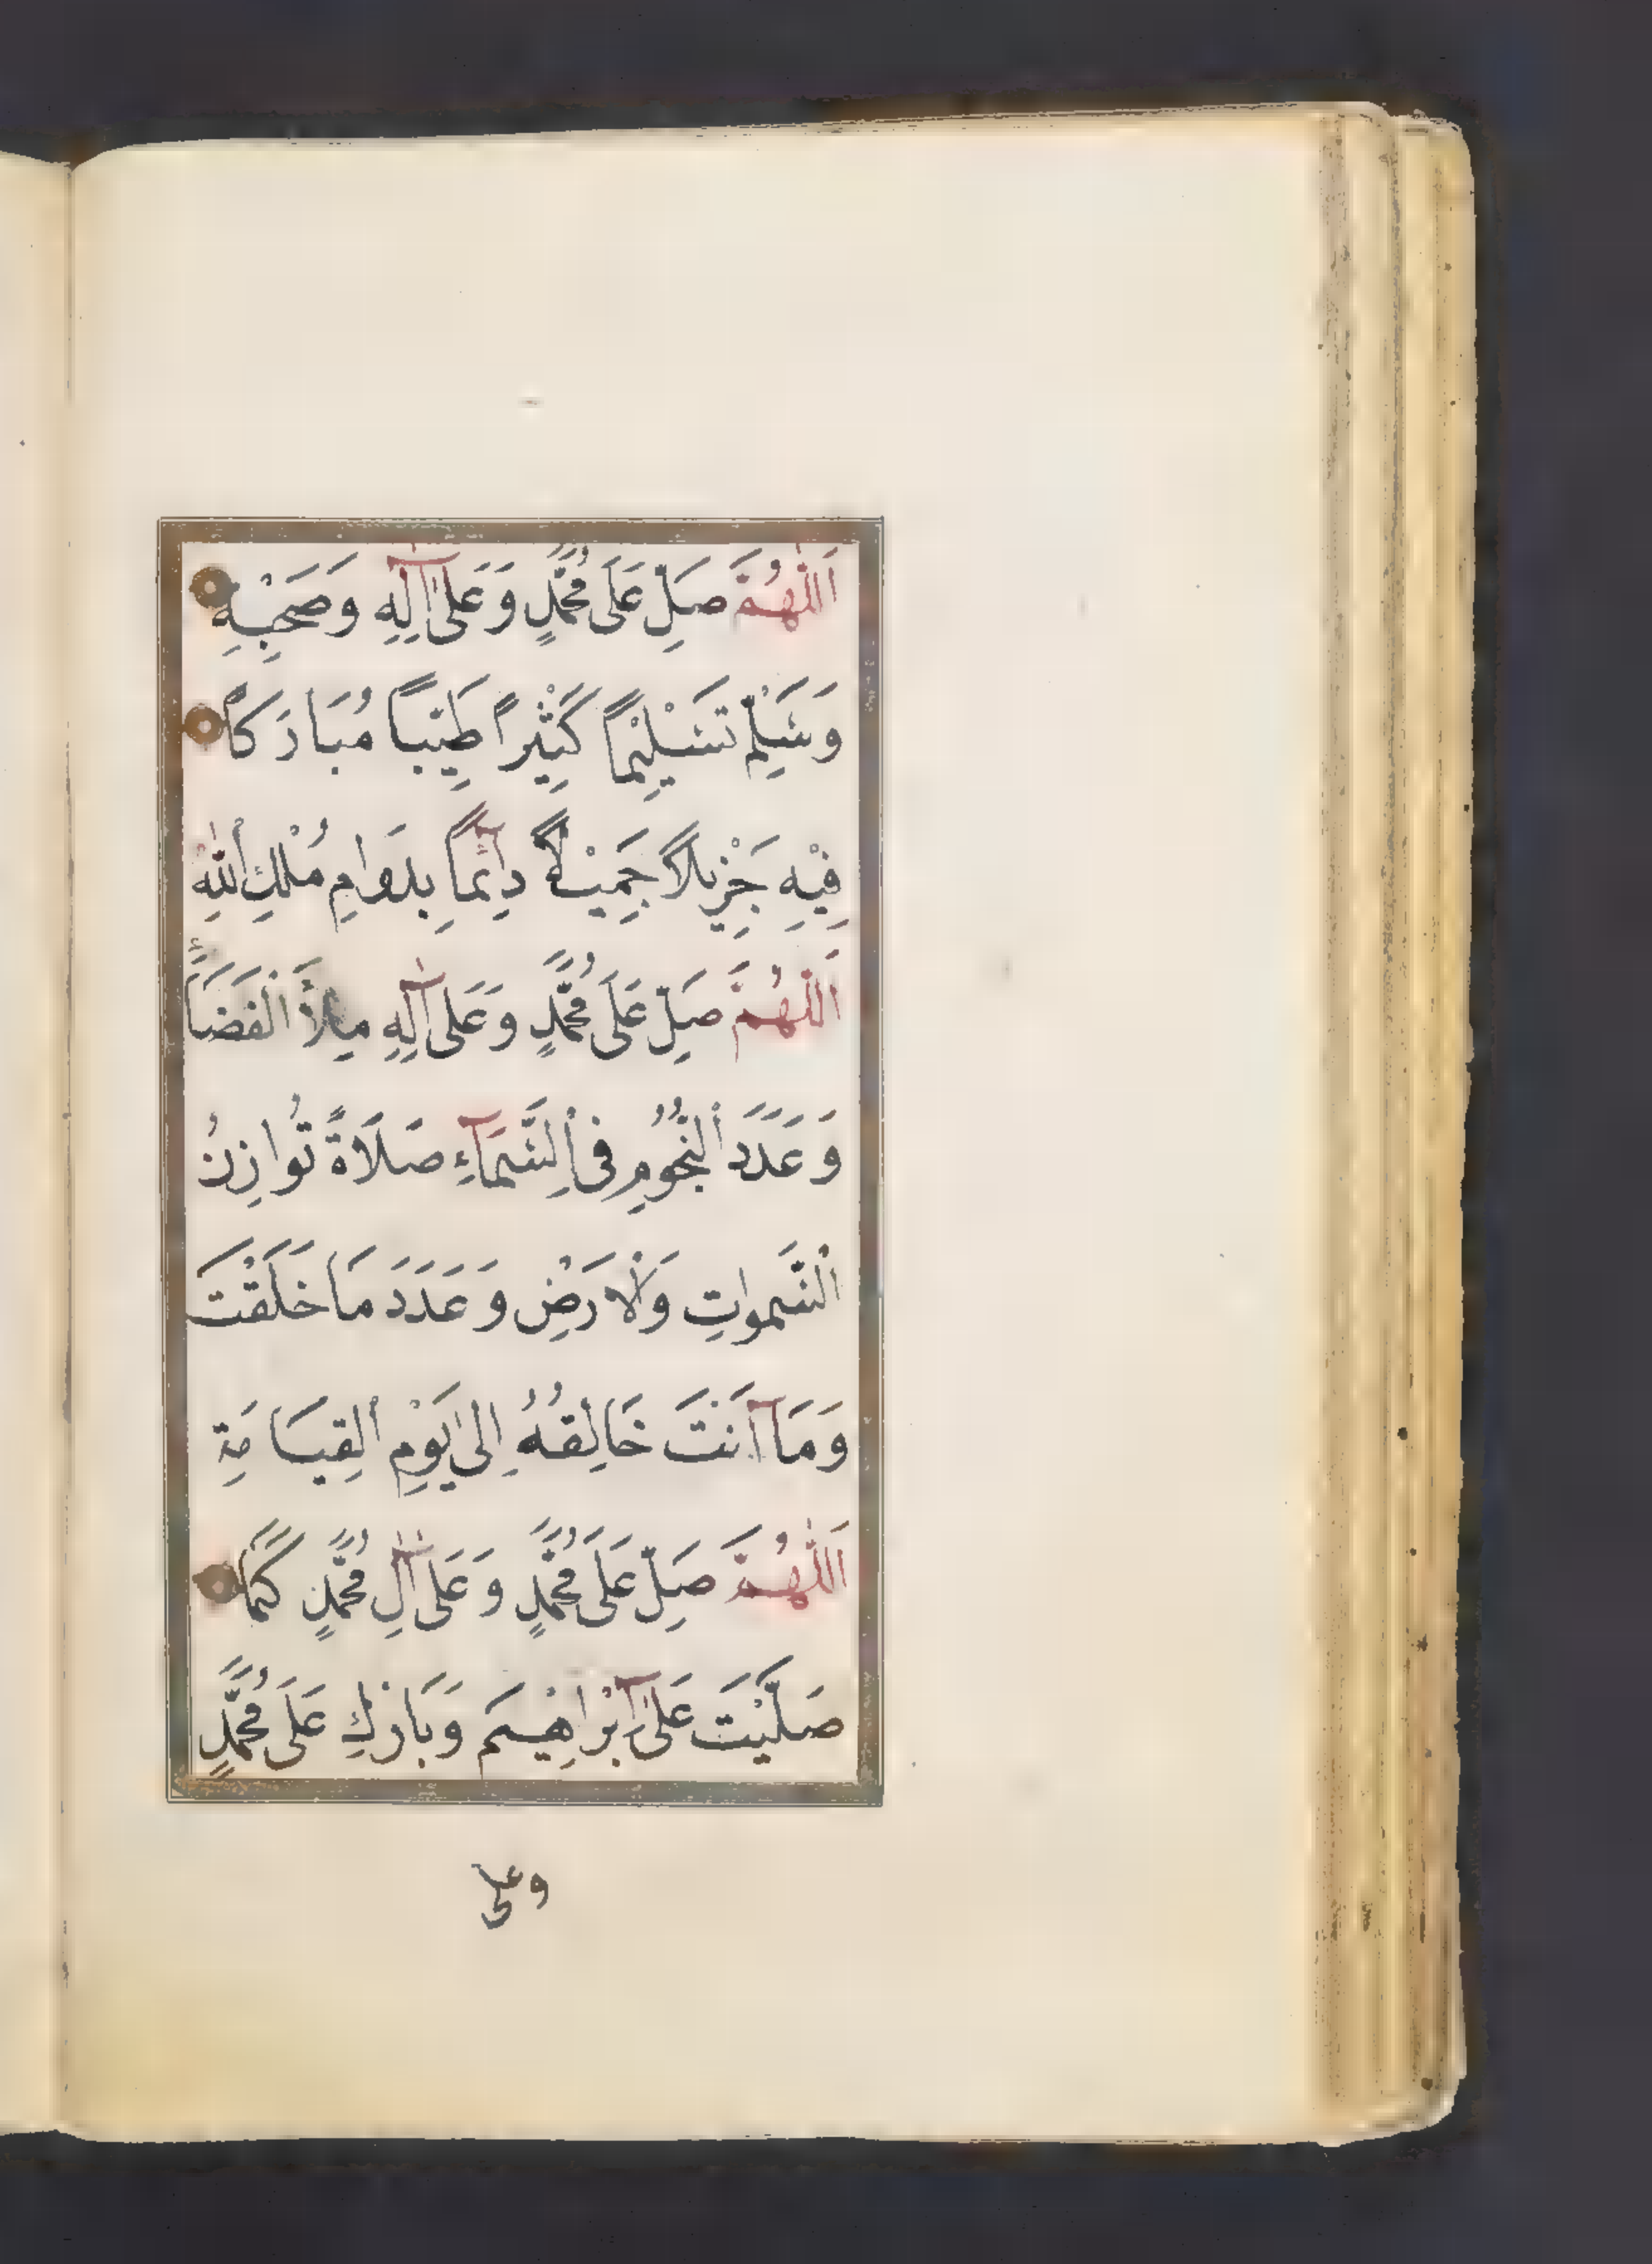 اَللّٰهُمَّ صَلِّ عَلَى مُحَمَّدٍ وَعَلَىٰ اٰلِهِ وَصَحْبِهِ
وَسَلِّمْ تَسْلِيْمًا كَثِيْرًا طَيِّبًا مُبَارَكًا
فِيْهِ جَزْيِلًا جَمِيْلًا دِآئِمًا بِدَوَامِ مُلْكِ اللّٰهِ
اَللّٰهُمَّ صَلِّ عَلَى مُحَمَّدٍ وَعَلَى اٰلِهِ مِلْأَ الْفَضَاءِ
وَعَدَدَ النُّجُومِ فِى السَّمَآءِ صَلَاةً تُوَازِنُ
السَّمٰوَاتِ وَالْارَضْ وَعَدَدَ مَا خَلَقْتَ
وَمَآ اَنْتَ خَالِقُهُ اِلٰى يَوْمِ الْقِيَامَةِ
اَللّٰهُمَّ صَلِّ عَلَى مُحَمَّدٍ وَعَلَى اٰلِ مُحَمَّدٍ كَمَا
صَلَّيْتَ عَلَىٓ اِبْرَاهِيْمَ وَبَارِكْ عَلَى مُحَمَّدٍ
وعلى